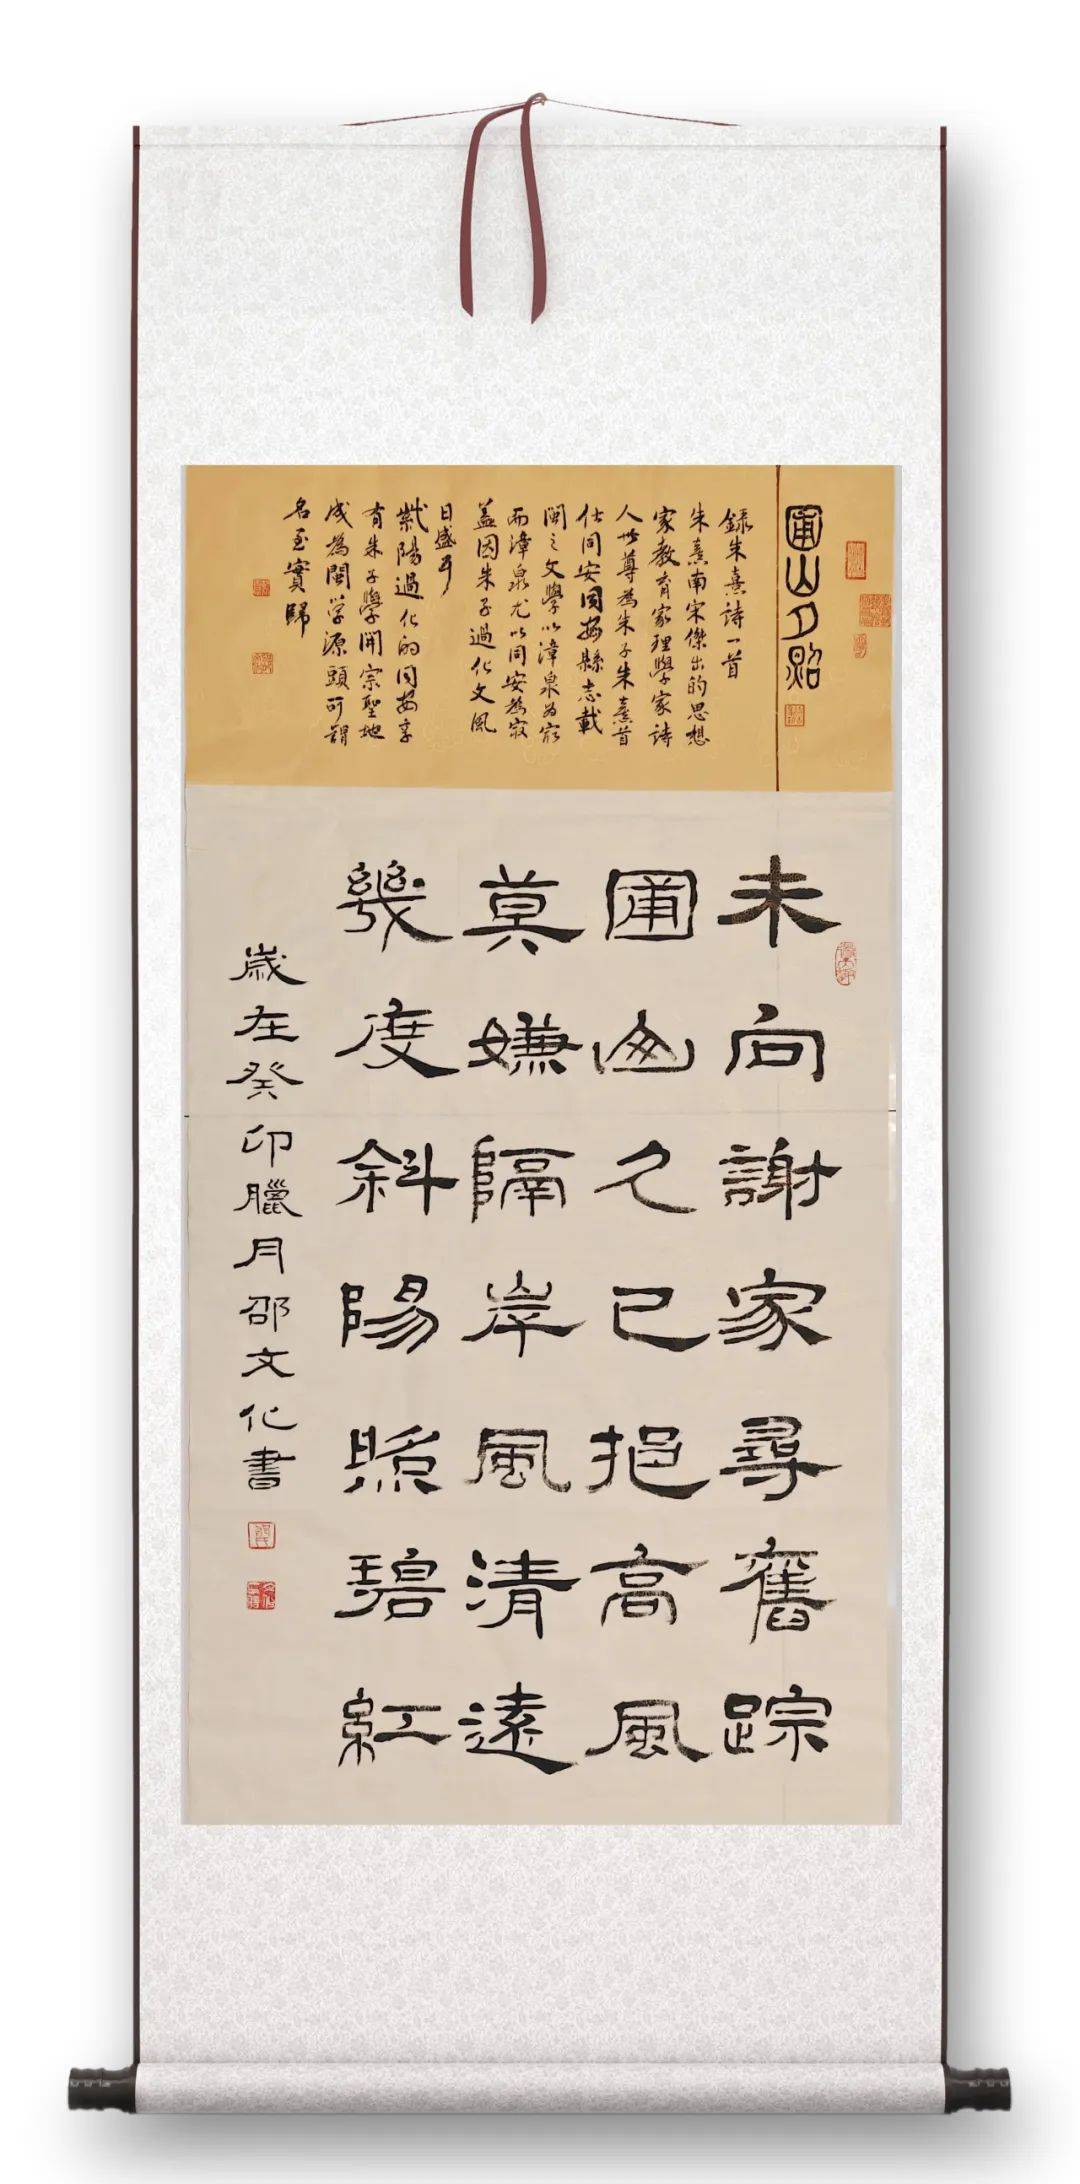 圃山夕照
錄朱熹詩一首
朱熹南宋傑出的思想
家教育家理學家詩
人世尊為朱子朱熹首
仕同安同安縣志載
閩之文學以漳泉為最
而漳泉尤以同安為最
蓋因朱子過化文風
日盛耳
紫陽過化的同安享
有朱子學開宗聖地
成為閩学源頭可謂
名至實歸
未向謝家尋舊踪
圃山久已挹高風
莫嫌隔岸風清遠
幾度斜陽照碧紅
歲在癸卯臘月邵文化書